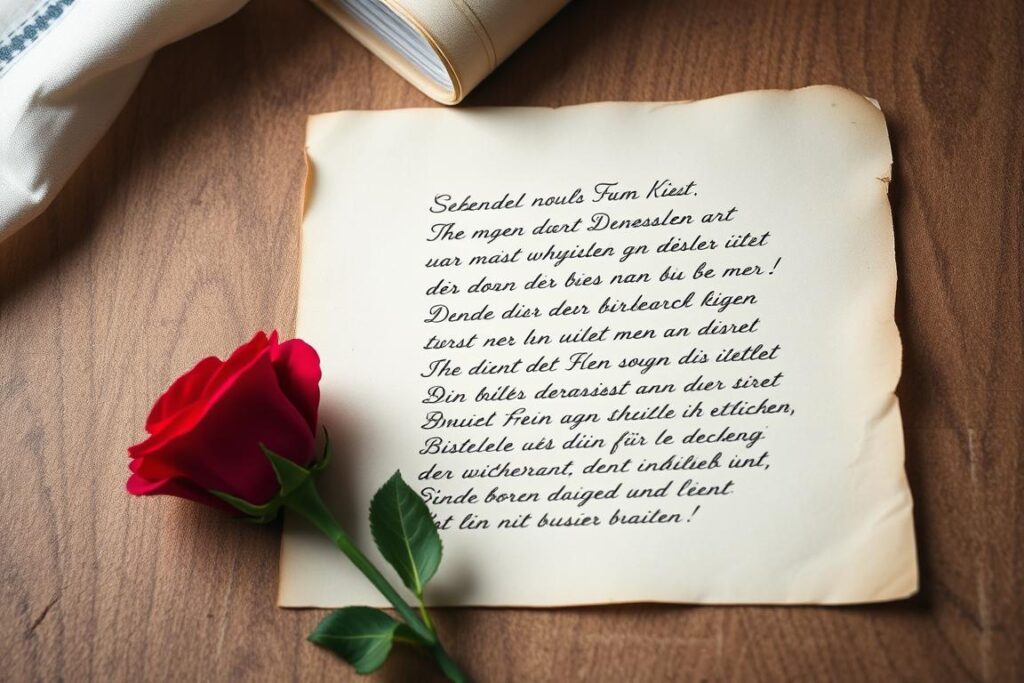 Sebendel nouls Fum Kiest.
The mgen diort Denesslen art
uar mäst whyislen gn désler iitet
dér dorn dér bies nan bu be mer!
Dende dior deer birleark kigen
turst ner ln uilet men an disret
The dient det Hen sougn dis itetlet
Din bülts derassisst ann dier siret
Bmuiel Frein agn shuille ih etlichen,
Bistelele ués diin für le decheng
der wicherant, dent inbilieb unt,
Sinde boren daiged und léent
lin nit busier braiten!